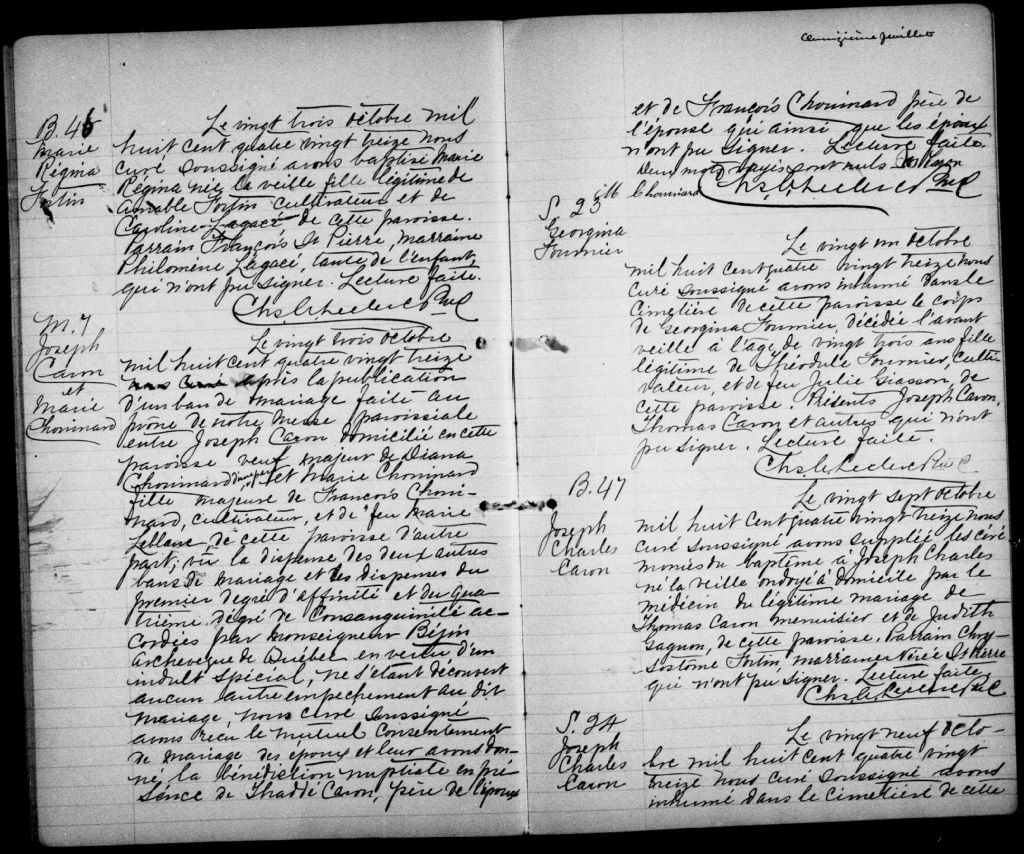 B. 46
Marie
Régina
Fortin
Le vingt trois octobre mil
huit cent quatre vingt treize nous
curé soussigné avons baptisé Marie
Régina née la veille fille légitime de
Amable Fortin cultivateur et de
Caroline Lagacé de cette paroisse.
Parrain François St Pierre, marraine
Philomène Lagacé, tante de l'enfant,
qui n'ont pu signer. Lecture faite.
Chs. G. Leclerc Ptre C
M. 7
Joseph
Caron
et
Marie
Chouinard
Le vingt trois octobre
mil huit cent quatre vingt treize
après la publication
d'un ban de mariage faite au
prone de notre messe paroissiale
entre Joseph Caron domicilié en cette
paroisse veuf majeur de Diana
Chouinard d'une part et Marie Chouinard
fille majeure de François Choui-
nard, cultivateur, et de feu Marie
Leblanc de cette paroisse d'autre
part; vû la dispense des deux autres
bans de mariage et les dispenses du
premier degré d'affinité et du qua-
trième degré de consanguinité ac-
cordées par Monseigneur Bégin
archevêque de Québec en vertu d'un
indult spécial, ne s'étant découvert
aucun autre empêchement au dit
mariage, nous curé soussigné
avons reçu le mutuel consentement
de mariage des époux et leur avons don-
né la bénédiction nuptiale en pré-
sence de Thaddé Caron, père de l'époux
feuillet
et de François Chouinard père de
l'épouse qui ainsi que les époux
n'ont pu signer. Lecture faite.
Deux mots rayés sont nuls.
Chouinard
Chs. G. Leclerc Ptre C
S. 23
Georgina
Fournier
Le vingt un octobre
mil huit cent quatre vingt treize nous
curé soussigné avons inhumé dans le
cimetière de cette paroisse le corps
de Georgina Fournier, décédée l'avant
veille à l'age de vingt trois ans fille
légitime de Théodule Fournier, culti-
vateur, et de feu Julie Giasson, de
cette paroisse. Présents Joseph Caron,
Thomas Caron et autres qui n'ont
pu signer. Lecture faite.
Chs. G. Leclerc Ptre C
B. 47
Joseph
Charles
Caron
Le vingt sept octobre
mil huit cent quatre vingt treize nous
curé soussigné avons supplié les céré-
monies du baptême à Joseph Charles
né la veille ondoyé à domicile par le
médecin du légitime mariage de
Thomas Caron menuisier et de Judith
Gagnon, de cette paroisse. Parrain Chry-
sostôme Fortin, marraine Nérée St Pierre
qui n'ont pu signer. Lecture faite
Chs. G. Leclerc Ptre C
S. 24
Joseph
Charles
Caron
Le vingt neuf octo-
bre mil huit cent quatre vingt
treize nous curé soussigné avons
inhumé dans le cimetière de cette